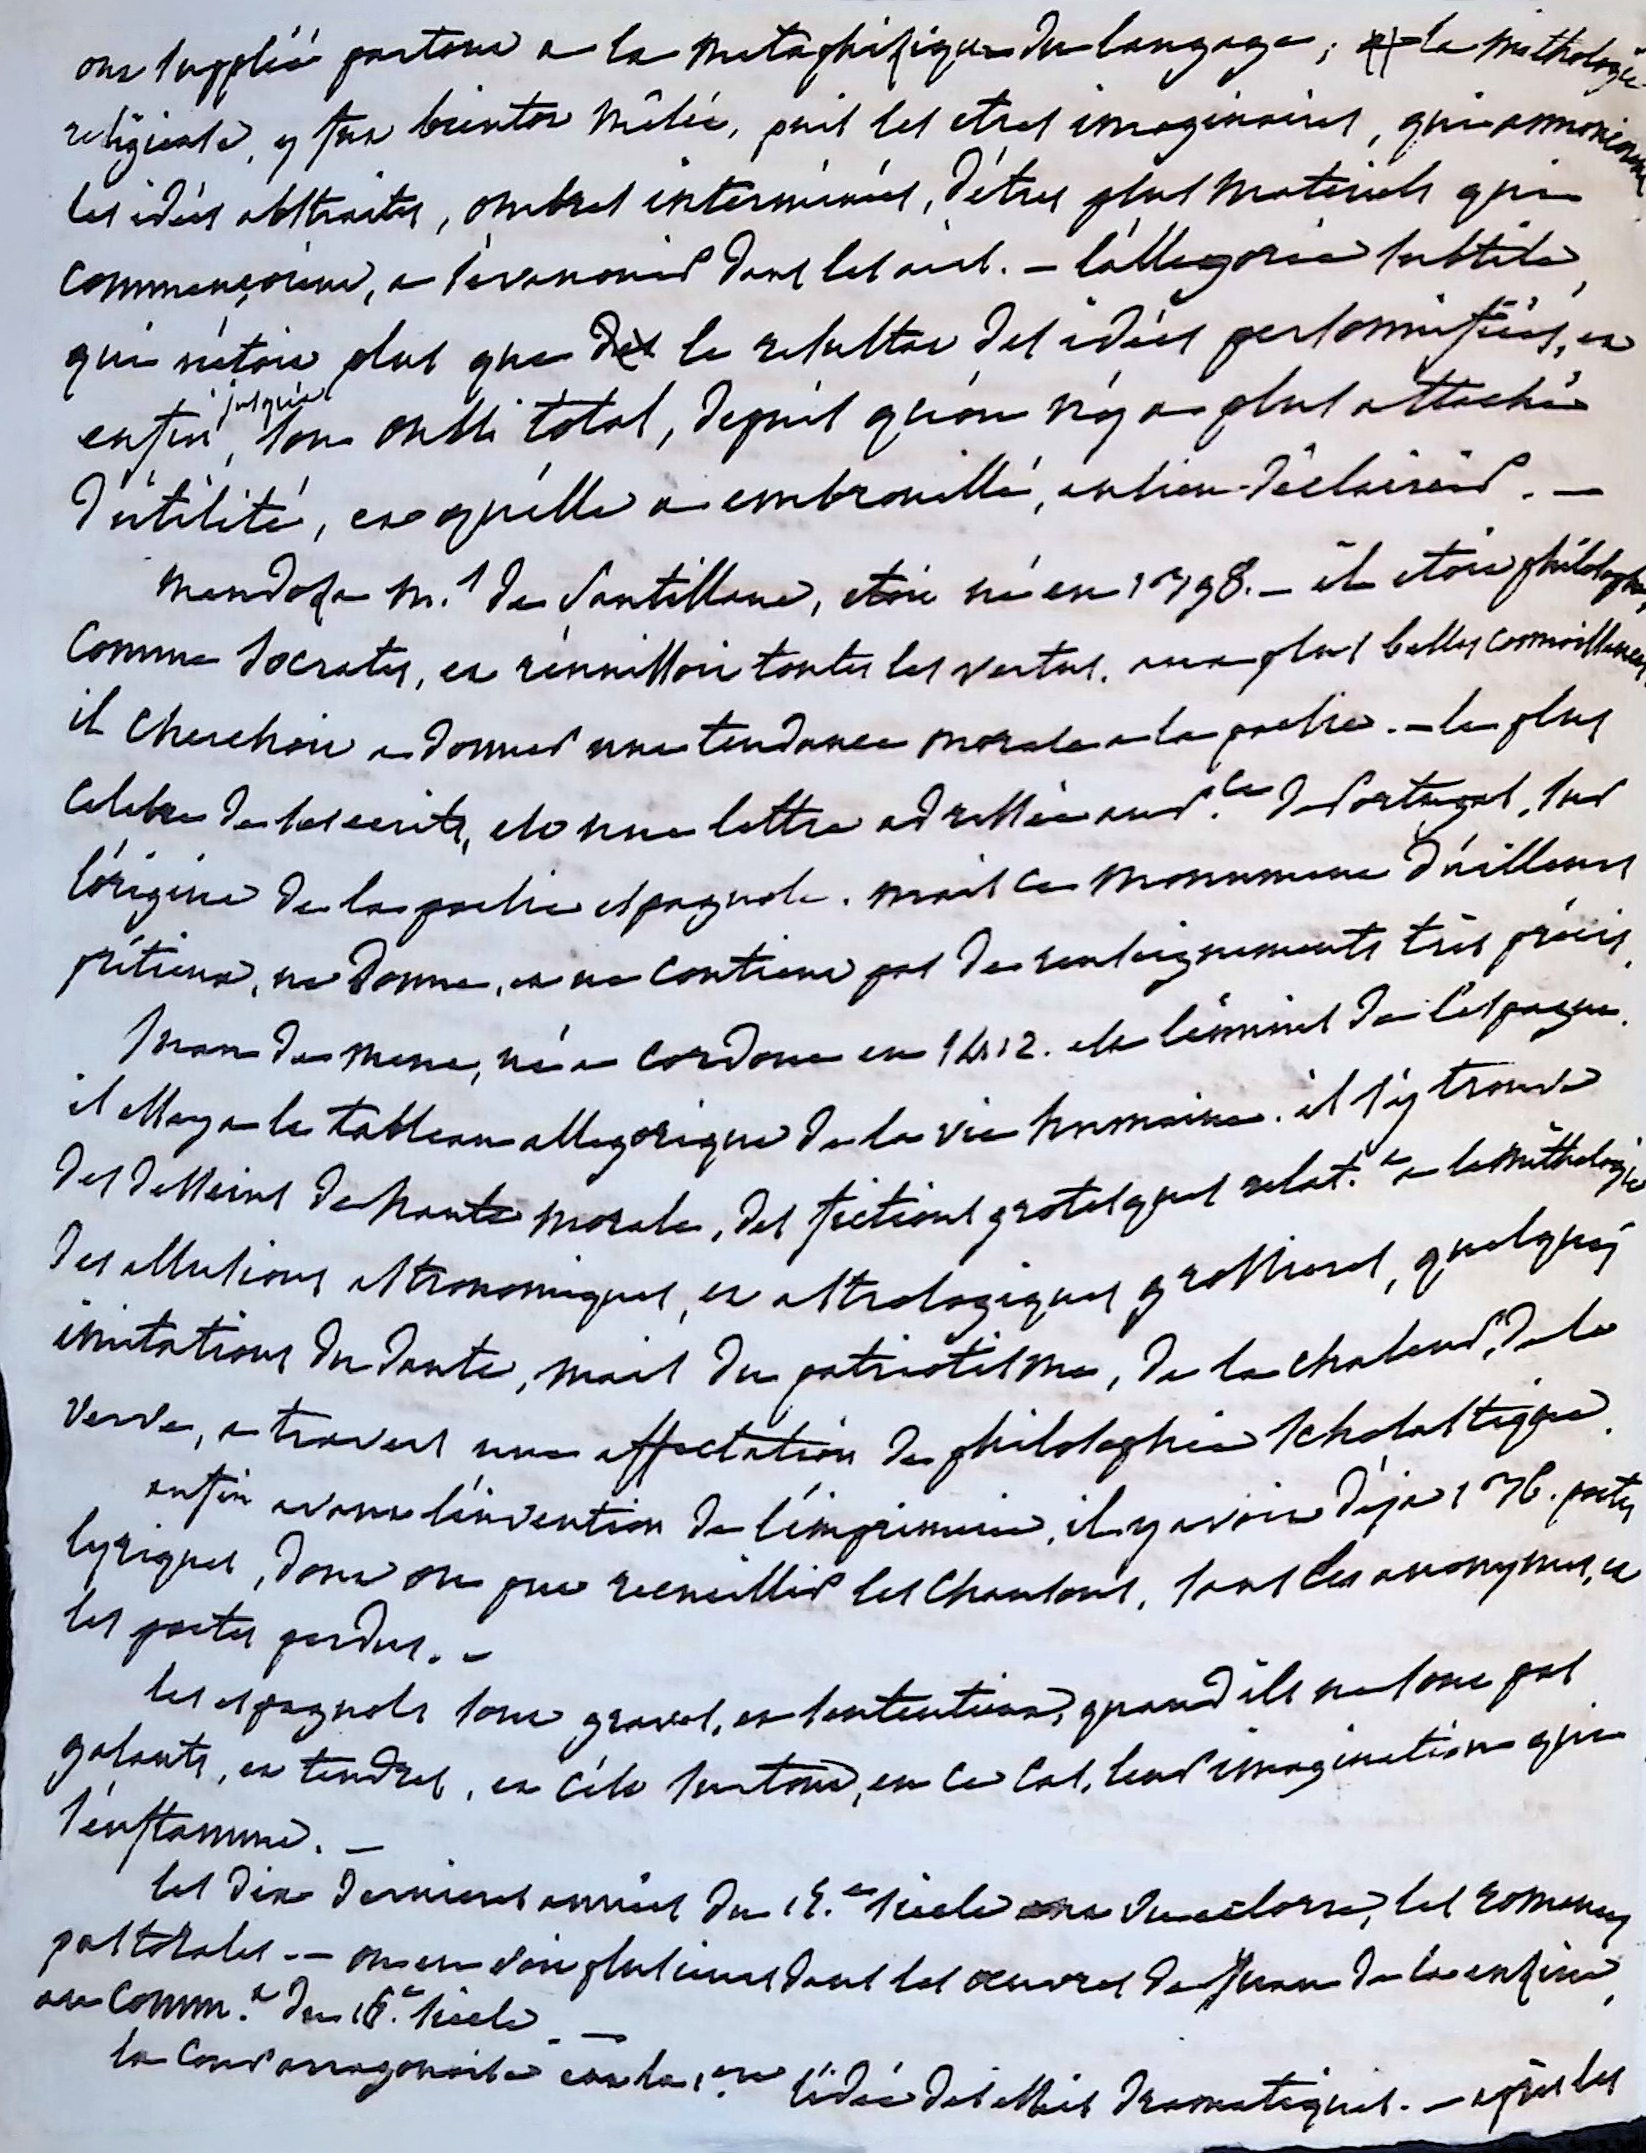 ont suppléé partout a la métaphisique du langage ; la mithologie
religieuse, y fut bientot mêlée, puis les etres imaginaires, qui annoncent
les idées abstraites, ombres interminées, d'êtres plus materiels qui
commençoient, a s'evanouir dans les airs. — l'allegorie subtile,
qui n'étoit plus que des le resultat des idées personnifiées, et
enfin, jusqu'à son oubli total, depuis qu'on n'y a plus attaché
d'utilité, et qu'elle a embrouillé, au lieu d'éclaircir. —
mendosa m.is de Santillane, etoit né en 1398. — il etoit philosophe,
comme Socrates, et réunissoit toutes les vertus, aux plus belles connoissances,
il cherchoit a donner une tendance morale a la poesie. — le plus
celebre de ses ecrits, est une lettre adressée au P.ce de Portugal, sur
l'origine de la poesie espagnole. mais ce monument d'ailleurs
prétieux, ne donne, et ne contient pas de renseignements très précis.
Juan de mena, né a Cordoue en 1412. est l'ennius de l'espagne.
il essaya le tableau allegorique de la vie humaine. il s'y trouve
des desseins de haute morale, des fictions grotesques relat.t a la mithologie
des allusions astronomiques, et astrologiques grossieres, quelques
imitations du dante, mais du patriotisme, de la chaleur, de la
verve, a travers une affectation de philosophie scholastique.
enfin avant l'invention de l'imprimerie, il y avoit déja 136. poetes
lyriques, dont on put recueillir les chansons, sans les anonymes, et
les poetes perdus. —
les espagnols sont graves, et sententieux, quand ils ne sont pas
galants, et tendres, et c'est surtout, en ce cas, leur imagination qui
s'enflamme. —
les dix dernieres années du 15.e siecle ont vu eclorre, les romances
pastorales — on en voit plusieurs dans les oeuvres de Juan de la enzina,
au comm.t du 16.e siecle —
la Cour arragonoise eut la 1.ere l'idée des essais dramatiques. — après les